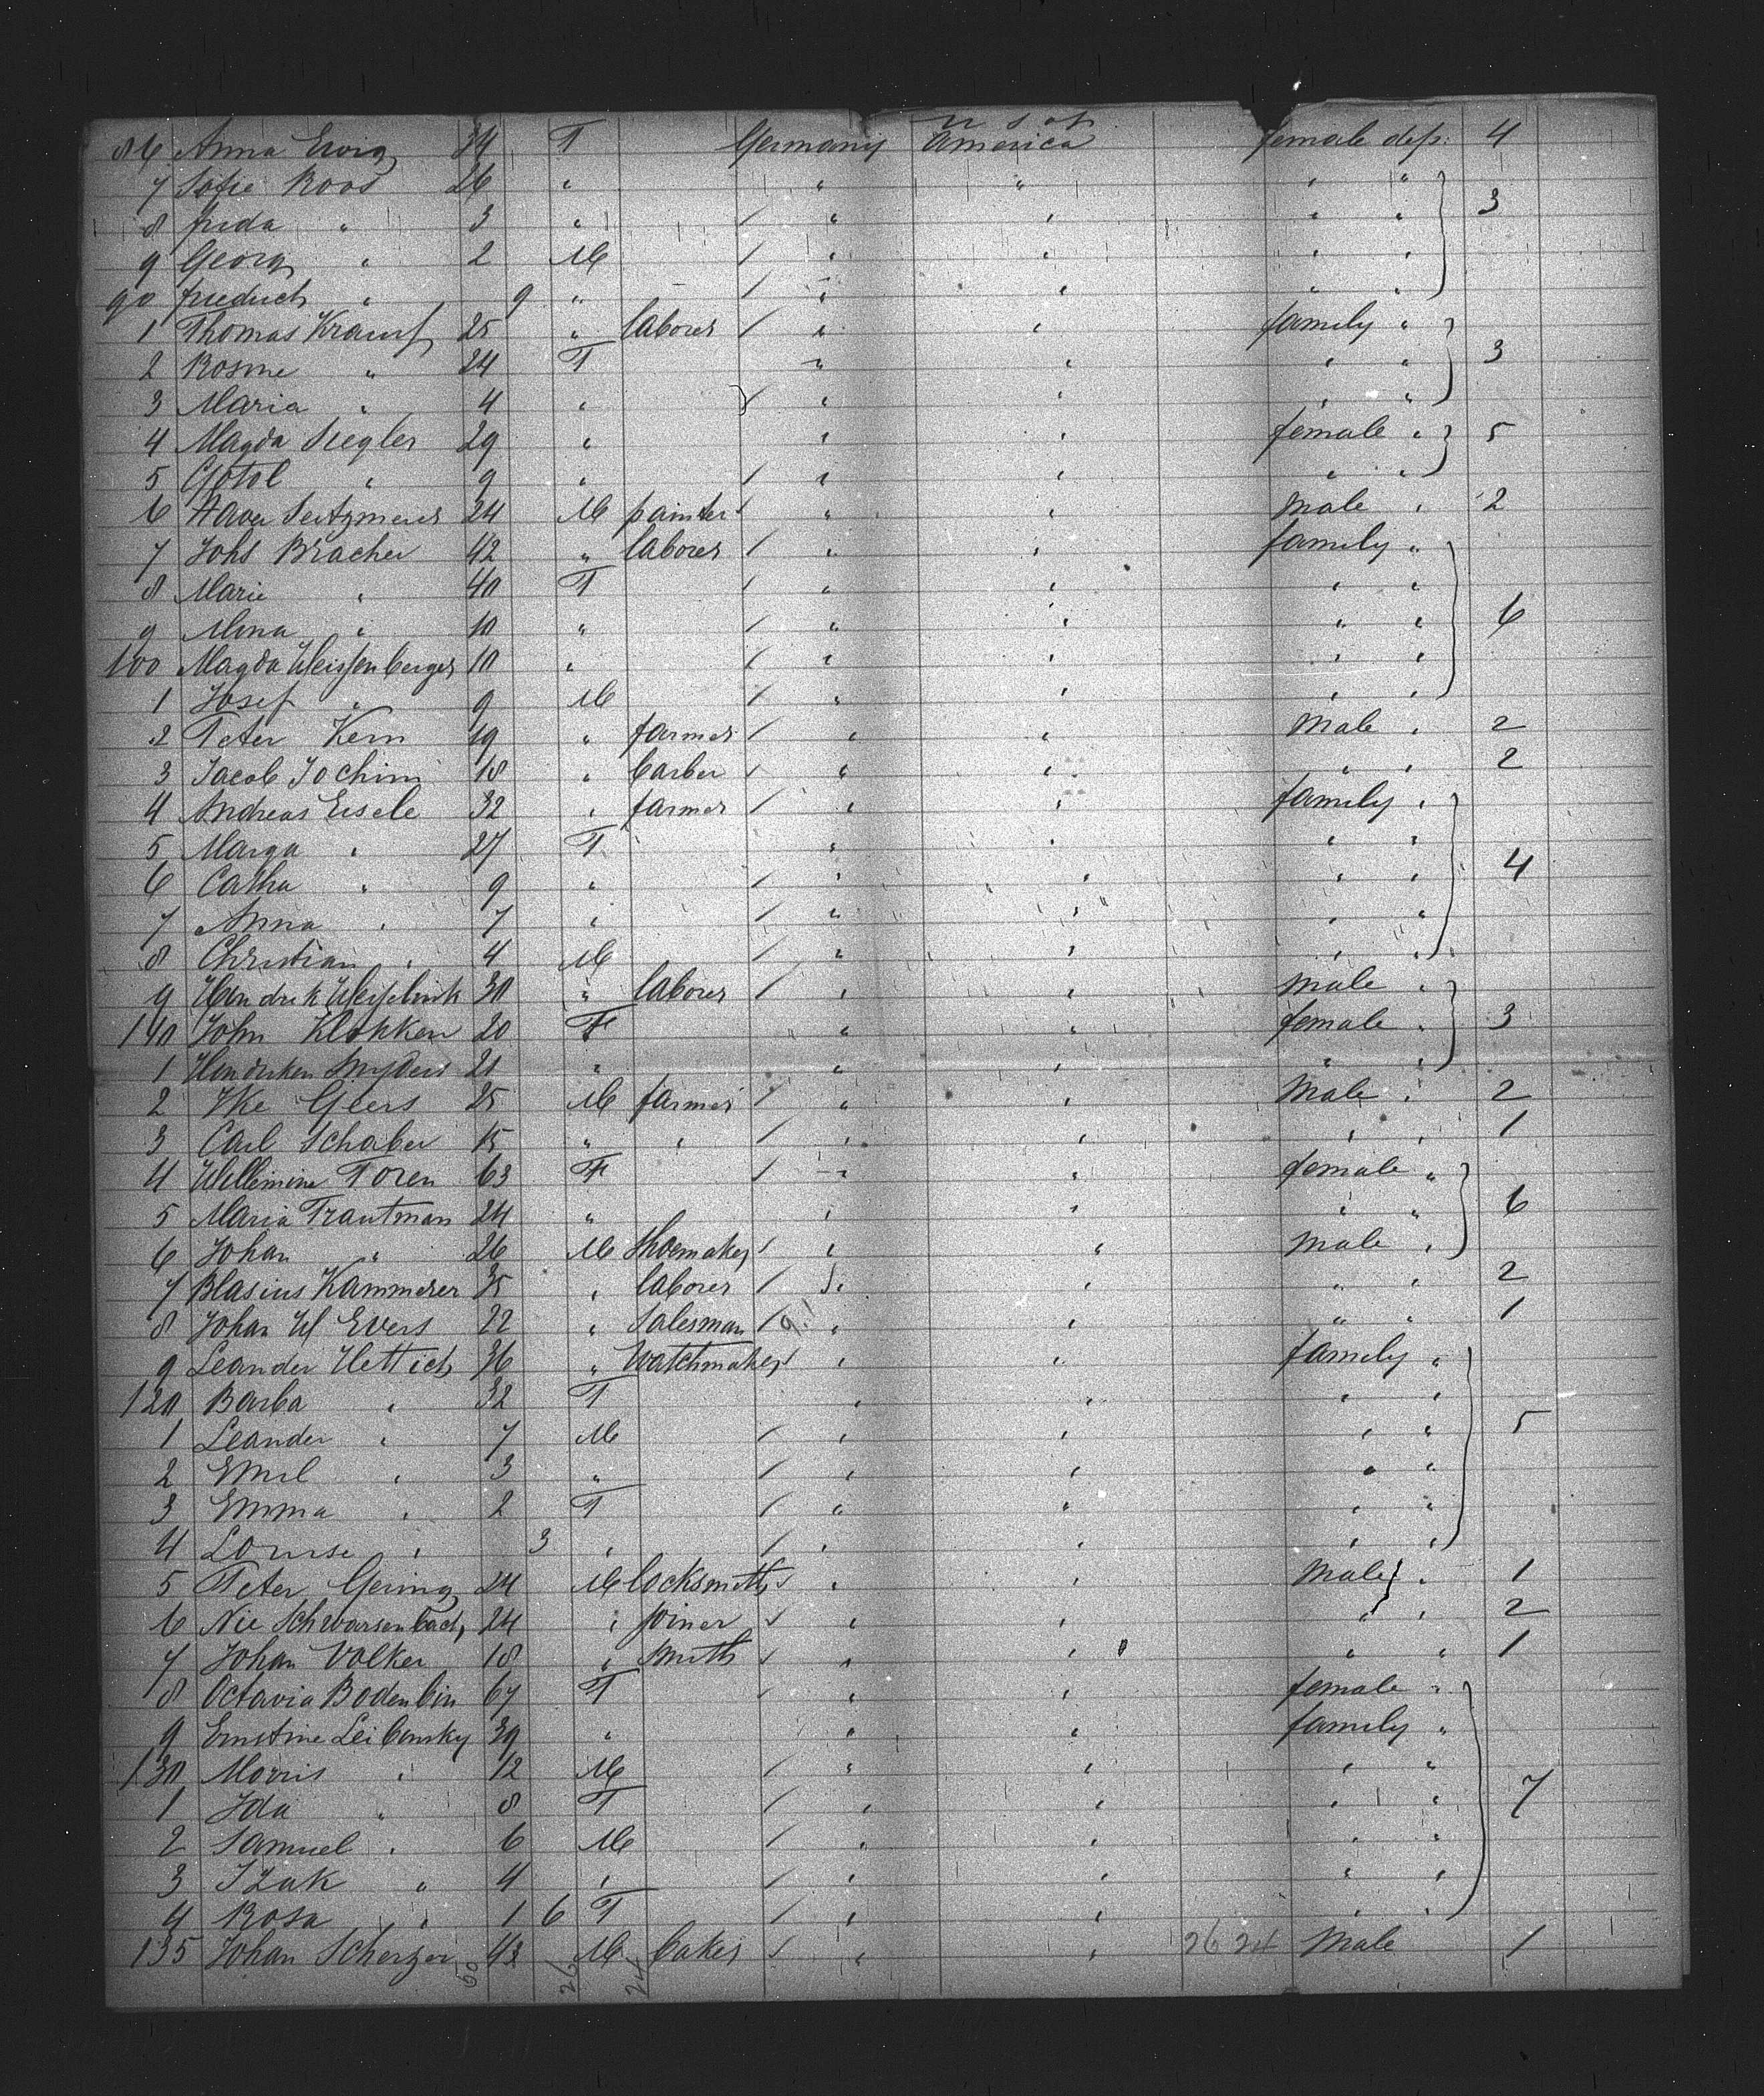 86 Anna Ewig 34 F Germany U S of America female dep: 4
7 Sofie Roos 26 " " " " "
8 frida " 3 " " " " " 3
9 Georg " 2 M " " " "
90 friedrich " 9 " " " " "
1 Thomas Krauss 25 " laborer " " family "
2 Rosine " 24 F " " " " 3
3 Maria " 4 " " " " "
4 Magda Siegler 29 " " " female " 5
5 Gotol " 9 " " " " "
6 Xaver 24 M painter " " Male " 2
7 Johs Bracher 42 " laborer " " family "
8 Marie " 40 F " " " "
9 Mina " 10 " " " " " 6
100 Magda Weissenberger 10 " " " " "
1 Josef " 9 M " " " "
2 Peter Kern 19 " farmer " " Male " 2
3 Jacob Jochim 18 " barber " " " " 2
4 Andreas Eisele 32 " farmer " " family "
5 Marga " 27 F " " " "
6 Catha " 9 " " " " " 4
7 Anna " 7 " " " " "
8 Christian " 4 M " " " "
9 Hendrik 30 " laborer " " Male "
110 John Klokken 20 F " " female " 3
1 Hendriken Snyders 21 " " " " "
2 Ike Geers 25 M farmer " " Male " 2
3 Carl Schaber 15 " " " " " " 1
4 Willemine Foren 63 F " " female "
5 Maria Trautman 24 " " " " " 6
6 Johan " 26 M Shoemaker " " Male "
7 Blasius Kammerer 35 " laborer " " " " 2
8 Johan W Evers 22 " Salesman " " " " 1
9 Leander Hettich 36 " Watchmaker " " family "
120 Barba " 32 F " " " "
1 Leander " 7 M " " " " 5
2 Emil " 3 " " " " "
3 Emma " 2 F " " " "
4 Louise " 3 " " " " "
5 Peter Gering 24 M locksmith " " Male " 1
6 Nic Schwarsenbach 24 " joiner " " " " 2
7 Johan Volker 18 " smith " " " " 1
8 Octavia Bodenbin 67 F " " female "
9 Ernstine Leibonsky 39 " " " family "
130 Morris " 12 M " " " "
1 Ida " 8 F " " " " 7
2 Samuel " 6 M " " " "
3 Izak " 4 " " " " "
4 Rosa " 1 6 F " " " "
135 Johan Scherzer 43 M baker " " 26 24 Male 1
50 26 24